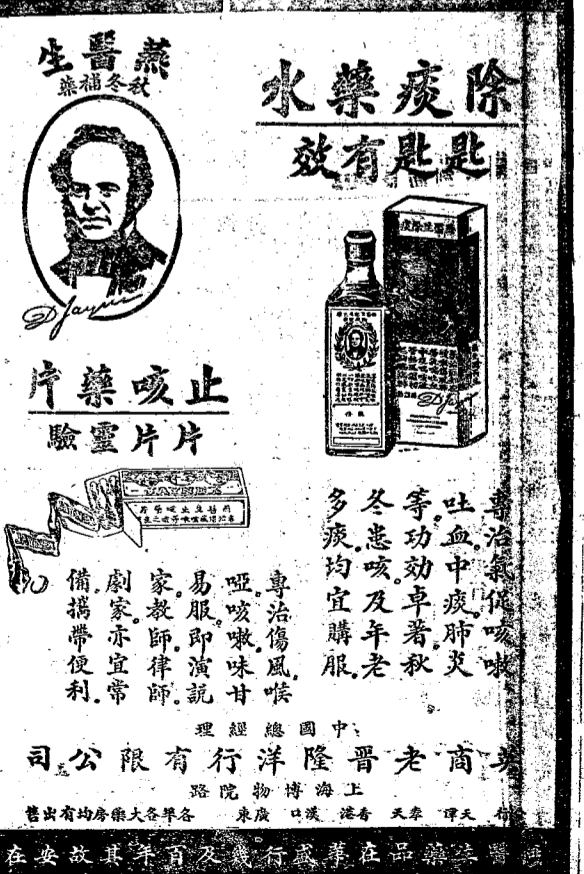 燕醫生
秋冬補藥
除痰藥水
匙匙有效
燕醫生除痰
D Jayne
D Jayne
止咳藥片
片片靈驗
JAYNE'S
專治氣促咳嗽
吐血。中痰。肺炎
等。功効卓著。秋
冬患咳。及年老
多痰。均宜購服。
專治傷風。喉
啞。咳嗽。味甘
易服。即演說
家。教師。律師。
劇家。亦宜常
備。攜帶便利。
中國總經理
英商老晉隆洋行有限公司
上海博物院路
行 天津 奉天 香港 漢口 廣東 各埠各大藥房均有出售
醫生藥品在華盛行幾及百年其故安在